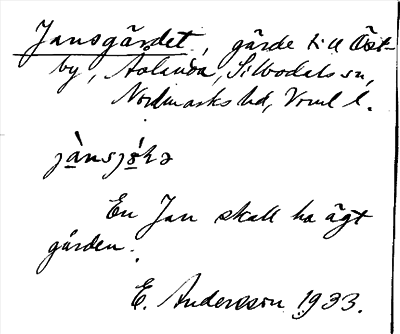 Jansgärdet, gärde till Öst-
by, Solanda, Silbodals sn,
Nordmarks hd, Vrml l.
En Jan skall ha ägt
gården.
E. Andersson 1933.